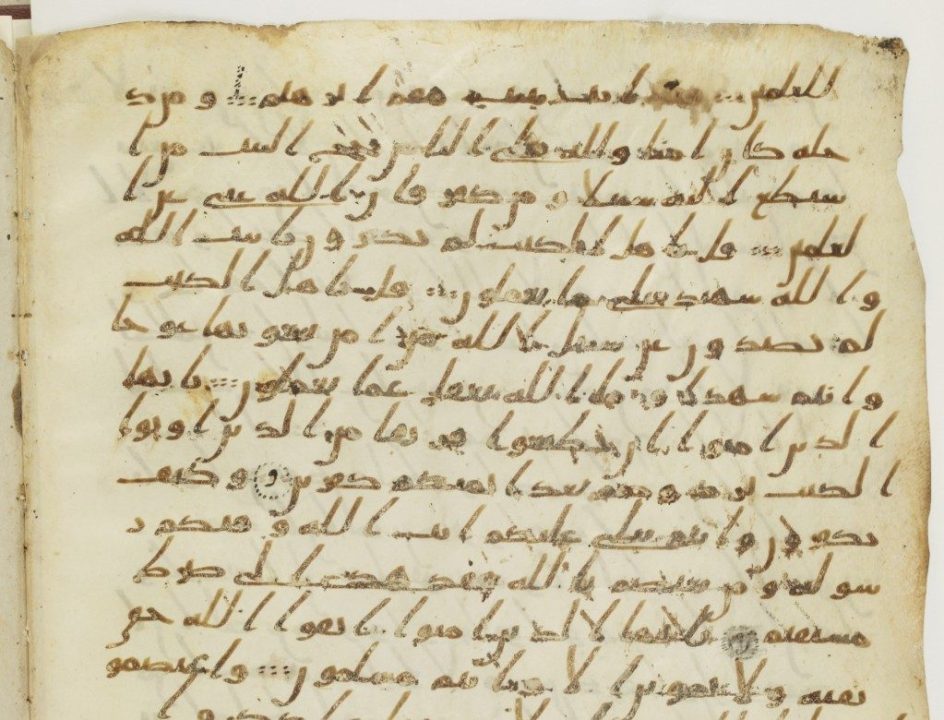 للعلمين فيه ايت بينت مقم ابرهيم ومن د
خله كان امنا ولله على الناس حج البيت من ا
ستطع اليه سبيلا ومن كفر فان الله غني عن ا
لعلمين قل ياهل الكتب لم تكفرون بايت الله
والله شهيد على ما تعملون قل ياهل الكتب
لم تصدون عن سبيل الله من امن تبغونها عوجا
وانتم شهدا وما الله بغفل عما تعملون يايها
الذين امنوا ان تطيعوا فريقا من الذين اوتوا
الكتب يردوكم بعد ايمنكم كفرين وكيف
تكفرون وانتم تتلى عليكم ايت الله وفيكم ر
سوله ومن يعتصم بالله فقد هدي الى صرط
مستقيم يايها الذين امنوا اتقوا الله حق
تقته ولا تموتن الا وانتم مسلمون واعتصمو